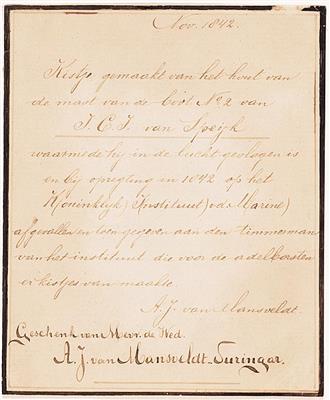 Nov. 1842.
Kistje, gemaakt van het hout van
de mast van de boot No 2 van
J. C. J. van Speijk
waarmede hij in de lucht gevlogen is
en bij oprigting in 1842 op het
Koninklijk Instituut v.d. Marine)
afgevallen en toen gegeven aan den timmerman
van het instituut die voor de adelborsten
er kistjes van maakte
A. J. van Mansveldt.
Geschenk van Mevr. de Wed.
A. J. van Mansveldt-Suringar.